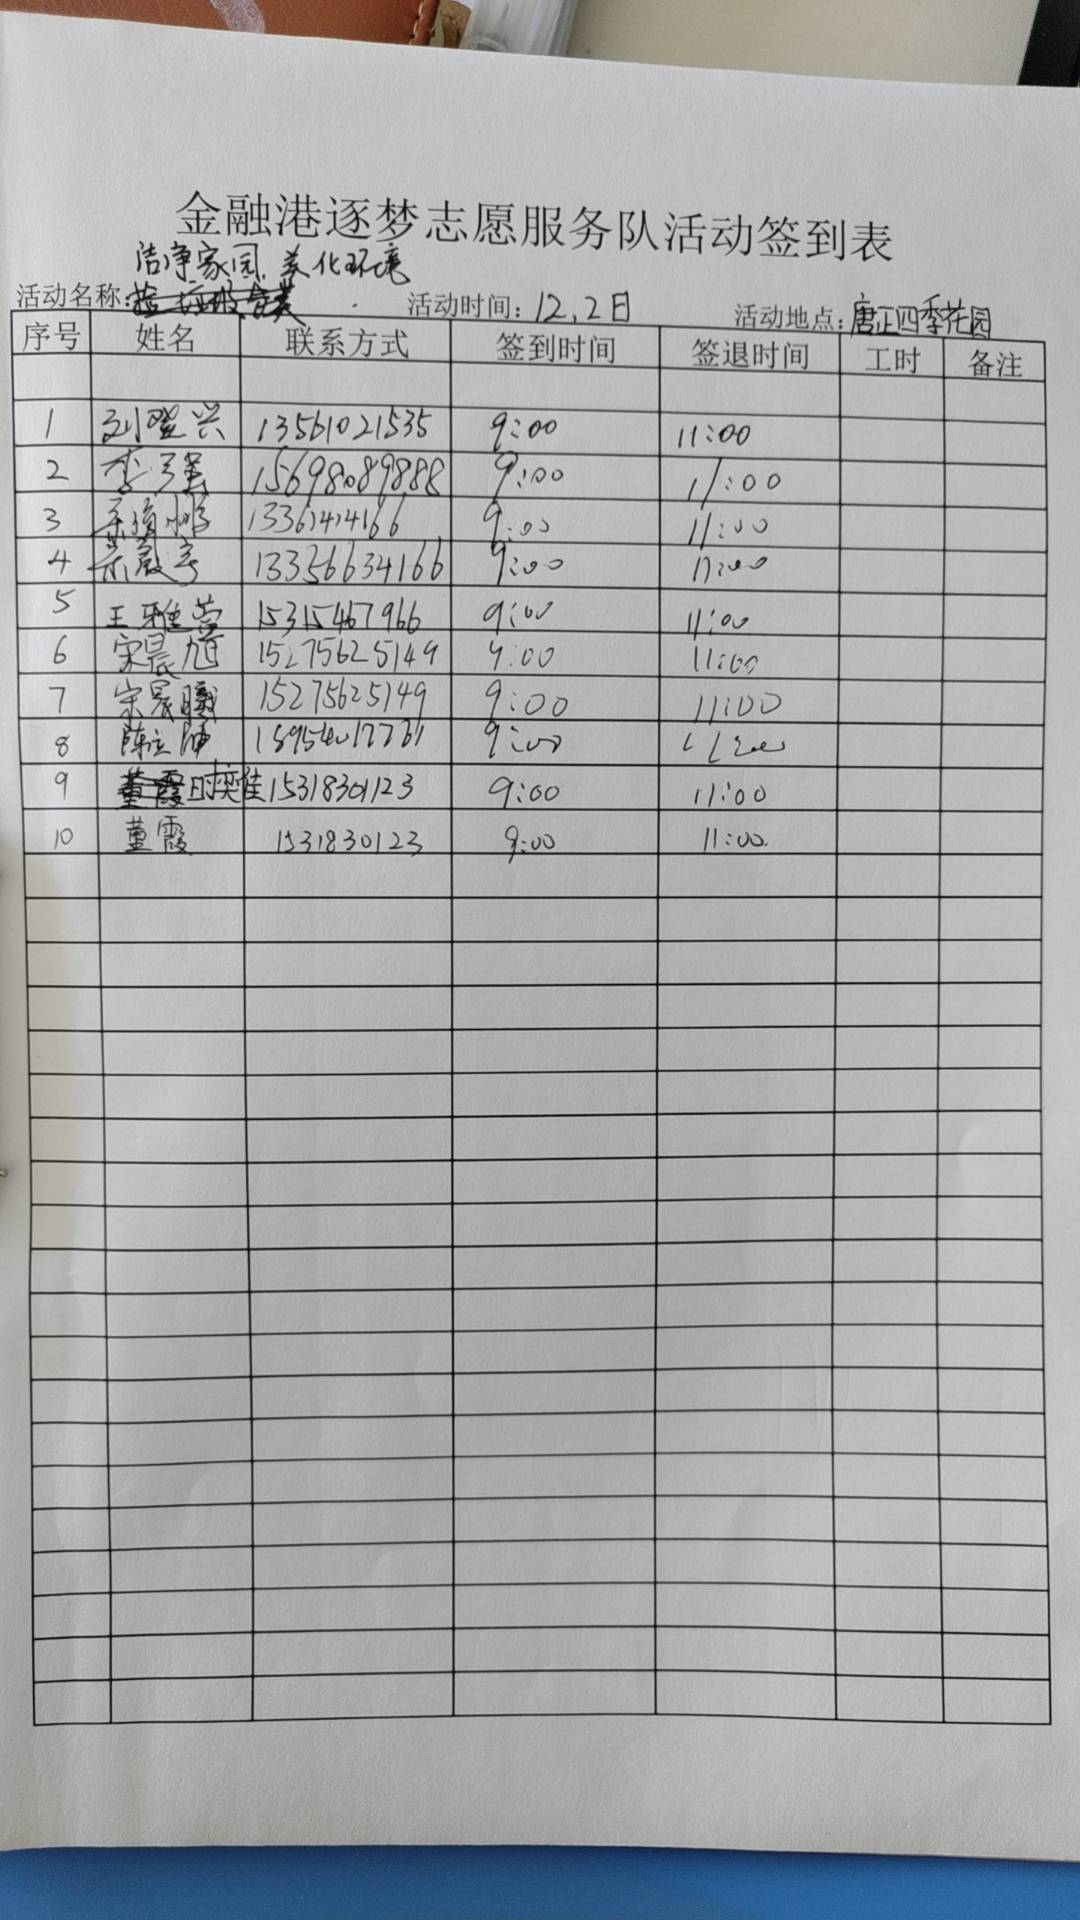 金融港逐梦志愿服务队活动签到表
洁净家园、美化环境
活动名称: 活动时间: 12.2日 活动地点: 唐正四季花园
序号 姓名 联系方式 签到时间 签退时间 工时 备注
1 刘登兴 13561021535 9:00 11:00
2 李 15698089888 9:00 11:00
3 9:00 11:00
4 13356634166 9:00 11:00
5 王雅莹 15315467966 9:00 11:00
6 宋晨旭 15275625149 9:00 11:00
7 宋晨曦 15275625149 9:00 11:00
8 陈立 9:00
9 时奕佳 15318301123 9:00 11:00
10 董霞 1531830123 9:00 11:00